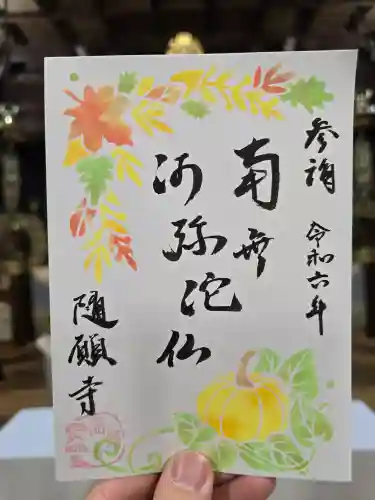 参詣 令和六年
南無
阿弥陀仏
随願寺